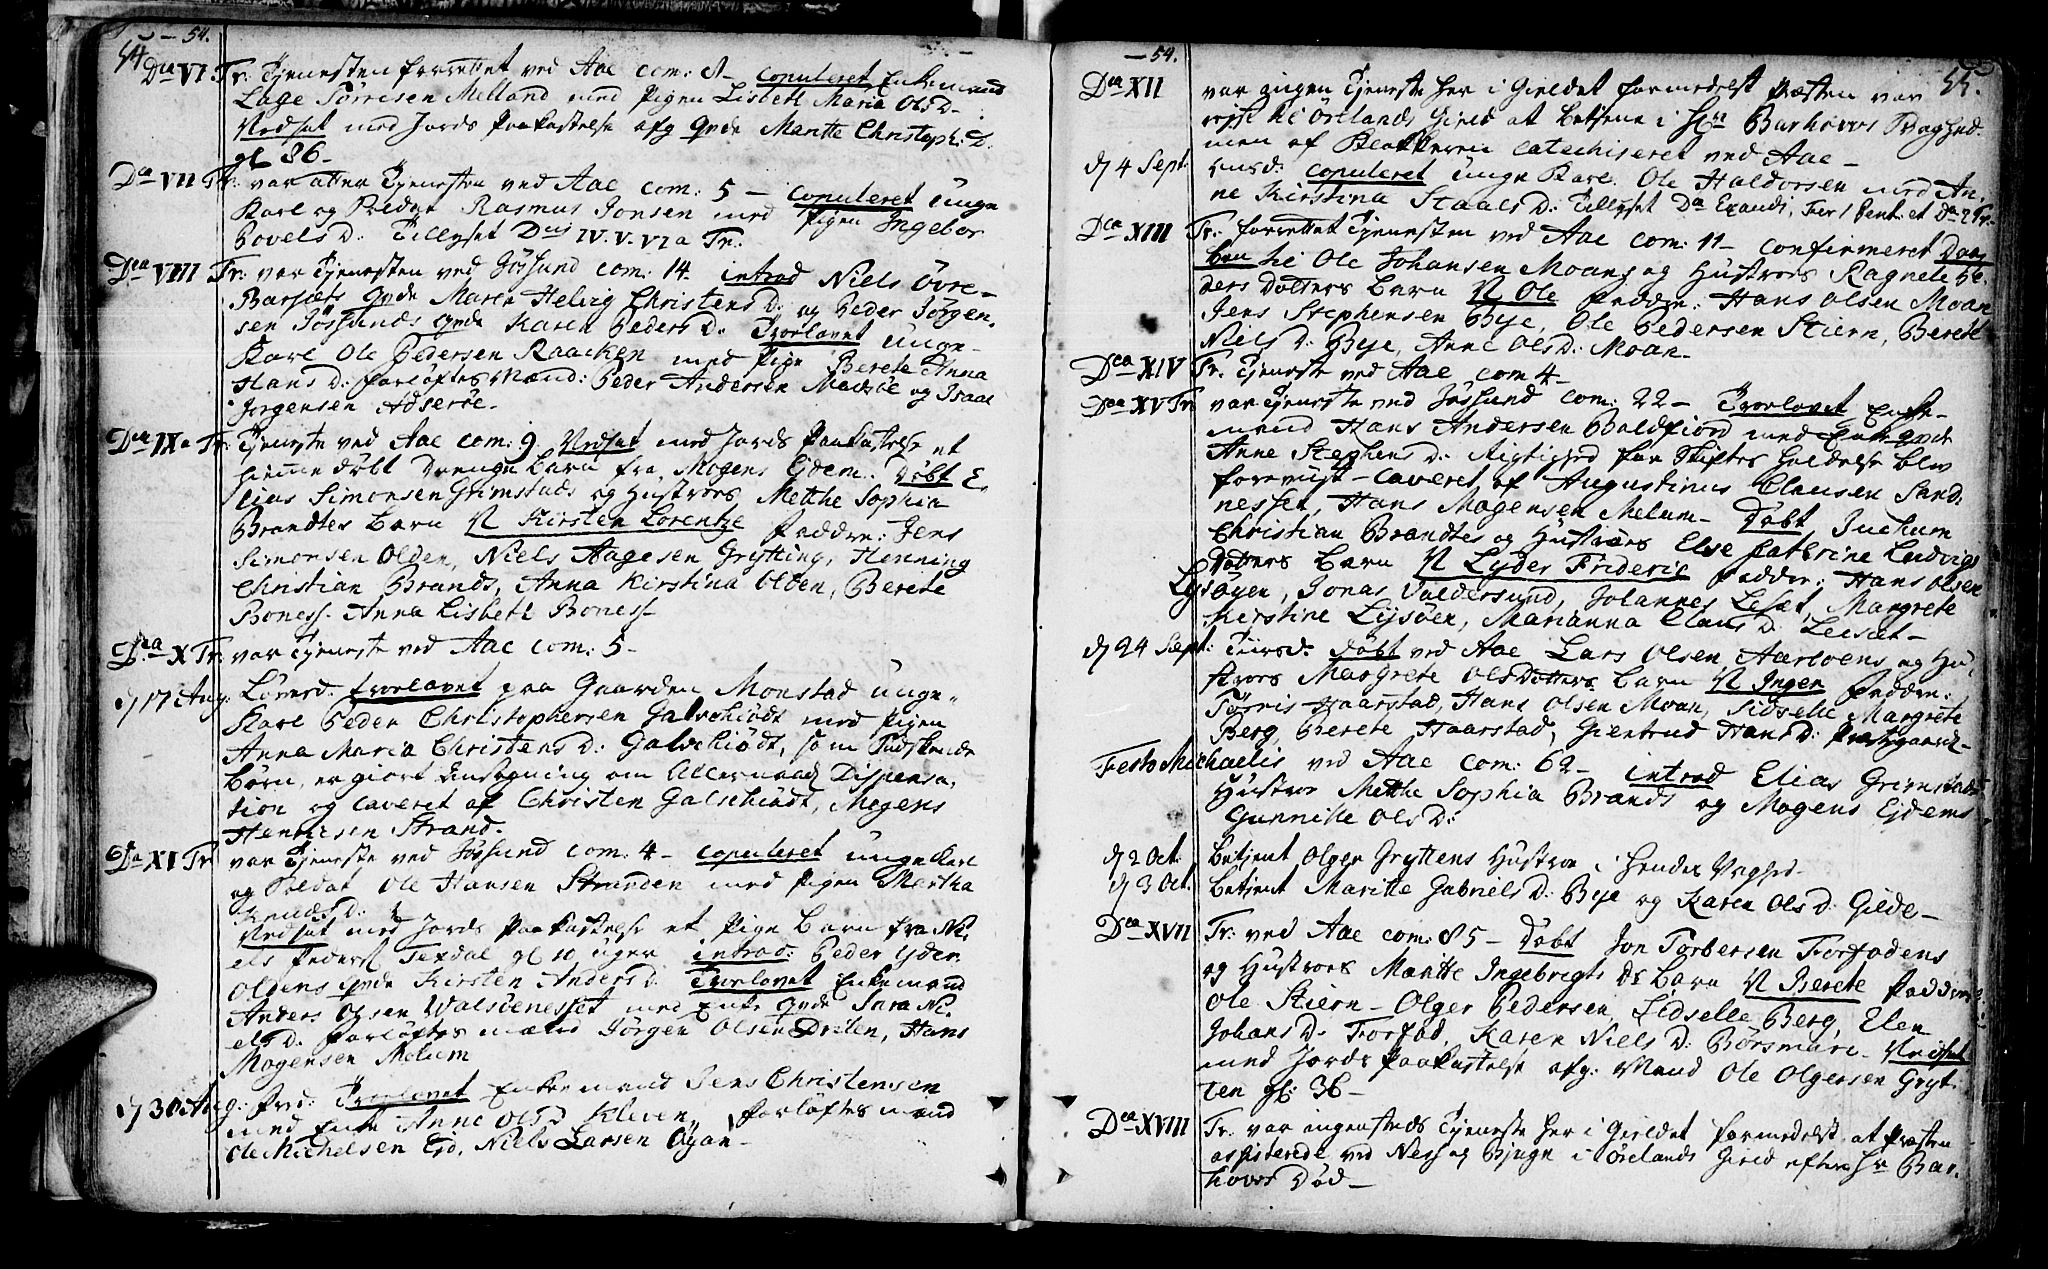 54
— 54.
Dca VI. Tr. Tjenesten forrettet ved Aae com: 8 — copuleret Enkemand
Lage Törrisen Melland med Pigen Lisbeth Maria OlsD.
Nedsat med Jords Paakastelse afg Qvde Maritte Christoph: D.
gl 86 —
Dca VII Tr. var atter Tjenesten ved Aae com: 5 — copuleret unge
Karl og Soldat Rasmus Jonsen med Pigen Ingebor
Povels D. Tillyst IV. V. VI a Tr.
Dca VIII Tr. var Tjenesten ved Jössund com: 14. introd Niels Övre
Barsæts Qvde Maren Helvig ChristensD. og Peder Jörgen-
sen Jössunds Qvde Karen PedersD. Trorlovet unge
Karl Ole Pedersen Raacken med Pige Berete Anna
Hans D: forlöftes Mænd: Peder Andersen Madsöe og Isaac
Jörgensen Adseröe.
Dca IXa Tr. Tjeneste ved Aae com: 9. Nedsat med Jords Paakastelse et
hiemme döbt Drenge Barn fra Mogens Ejdem. Döbt E-
lias Simonsen Grimstads og Hustroes Metthe Sophia
Brandtes Barn N Kirsten Lorentze Faddre: Jens
Simonsen Olden, Niels Aagesen Grytting, Henning
Christian Brands, Anna Kirstina Olden, Berete
Boness. Anna Lisbeth Boness —
Dca X Tr. var Tjeneste ved Aae com: 5 —
d 17 Aug. Löverd. trorlovet paa Gaarden Monstad unge
Karl Peder Christophersen Galschiödt med Pigen
Anna Maria Christens D: Galschiödt, som Sudskende
börn, er giort Ansögning om Allernaad Dispensa-
tion og caveret af Christen Galschiödt, Mogens
Henricsen Strand.
Dca XI Tr var Tjeneste ved Jössund com: 4 — copuleret unge Karl
og Soldat Ole Hansen Stranden med Pigen Mertha
Knuds D:
Nedsat med Jords Paakastelse et Pige Barn fra Ni-
els Peders Texdal gl 10 uger introd: Peder Ejder
Oldens Qvde Kirsten Anders D. Trorlovet Enkemand
Anders Olsen Walsöenesset med Enke Qvde Sara Ni-
els D. forlöftes mænd Jörgen Olsen Dreten, Hans
Mogensen Melum
d 30 Aug. Fred: Trorlovet Enkemand Jens Christensen
med Enke Anne Ols D Kleven, forlöftes mænd
Ole Michelsen Eid, Niels Larsen Öyan —
— 54.
55.
Dca XII var ingen Tjeneste her i Gieldet formedelst Præsten var
rejst til Örelands Gield at betjene i Hr Barhoves Svaghed.
men af Klokkeren catechiseret ved Aae —
d 4 Sept. onsd. copuleret unge Karl Ole Haldorsen med An-
ne Kirstina Staals D: Tillyst Dca Exaudi, Fer 1 Pent. et Dca 2 Tr.
Dca XIII Tr. forrettet Tjenesten ved Aae com: 11 — confirmeret Daa-
ben til Ole Johansen Moans og Hustroes Ragnele Pe-
ders Dotters Barn N Ole Faddre: Hans Olsen Moan
Jens Stephensen Bye, Ole Pedersen Stiern, Berete
Niels D. Bye, Anne Ols D: Moan —
Dca XIV Tr. Tjeneste ved Aae com 4 —
Dca XV Tr var Tjeneste ved Jössund com: 22 — Trorlovet Enke-
mand Hans Andersen Boldfiord med Enke Qvde
Anne Stephens D. Rigtighed for Skiftes holdelse blev
foreviist — caveret af Augustinus Clausen Sand-
nesset, Hans Mogensen Melum — Döbt Juchum
Christian Brandtes og Hustroes Else Catrine Ludvigs
Dotters Barn N Lyder Frideric Faddre: Hans Olsen
Lysöyen, Jonas Valdersund, Johannes Leset, Margrete
Kirstine Lysöen, Marianna Claus D. Leeset —
d 24 Sept: Tiirsd. Döbt ved Aae Lars Olsen Aarloens og Hu-
stroes Margrete Ols Dotters Barn N Ingen Faddre:
Törris Haarstad, Hans Olsen Moan, Sidselle Margrete
Berg, Berete Haarstad, Giertrud Hans D: Præstgaard —
Festo Michaelis ved Aae com: 62 — introd Elias Grimstads
Hustroe Metthe Sophia Brands og Mogens Ejdems
Gunnille Ols D:
d 2 Oct. betjent Olger Gryttens Hustroe i hendes Svaghed —
d 3 Oct. betjent Maritte Gabriels D: Bye og Karen Ols D. Gilde —
Dca XVII Tr: ved Aae com: 85 — Döbt Jon Torbersen Forfodens
og Hustroes Maritte Ingebrigts Ds Barn N Berete Faddre:
Ole Stiern — Olger Pedersen, Sidselle Berg, Elen
Johans D. Forfod, Karen Niels D. Börsmare. Nedsat
med Jords Paakastelse afg: Mand Ole Olgersen Gryt-
ten gl: 36 —
Dca XVIII Tr: var ingensteds Tjeneste her i Gieldet formedelst at Præsten
assisterede ved Ness og Bjugn i Örelands Gield efter Hr Bar-
hoves Död —